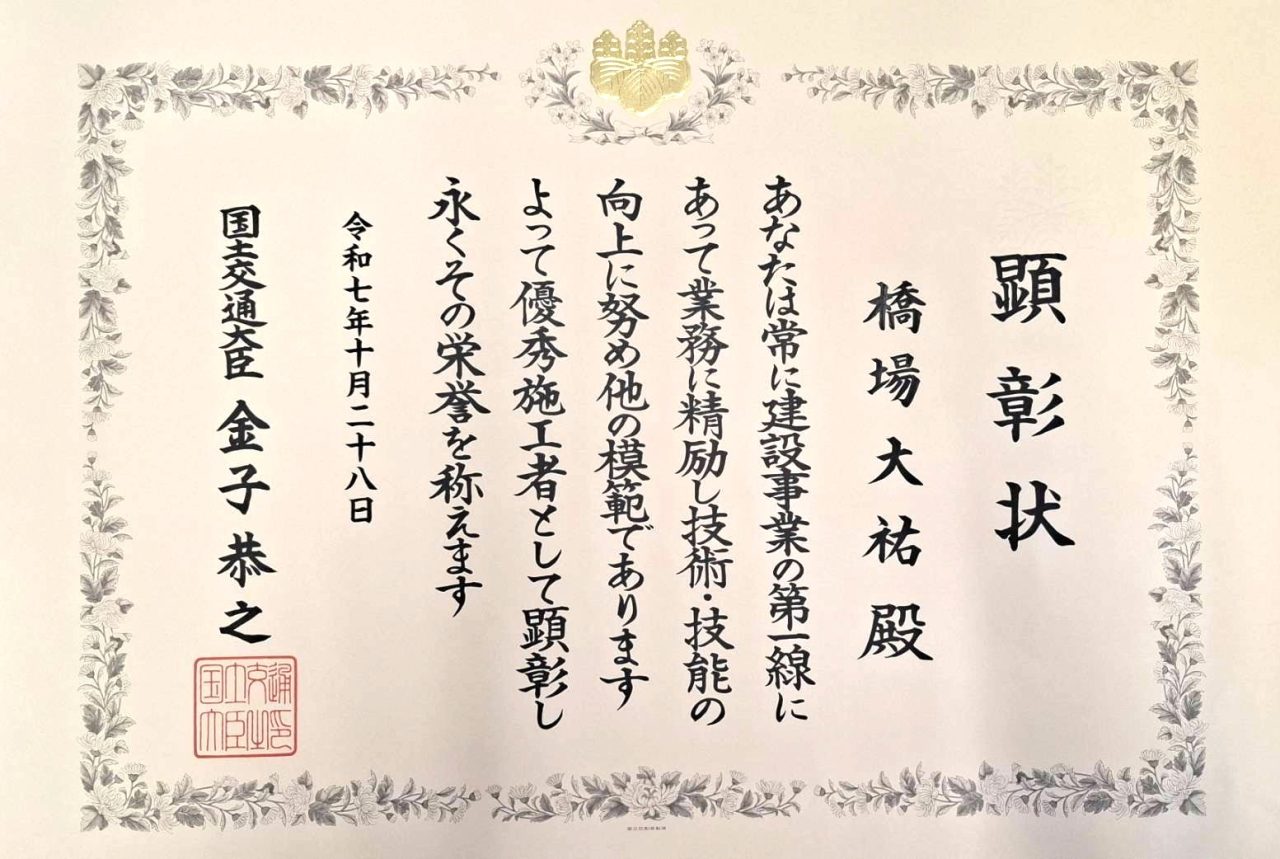 顕彰状
橋場大祐殿
あなたは常に建設事業の第一線に
あって業務に精励し技術・技能の
向上に努め他の模範であります
よって優秀施工者として顕彰し
永くその栄誉を称えます
令和七年十月二十八日
国土交通大臣 金子恭之